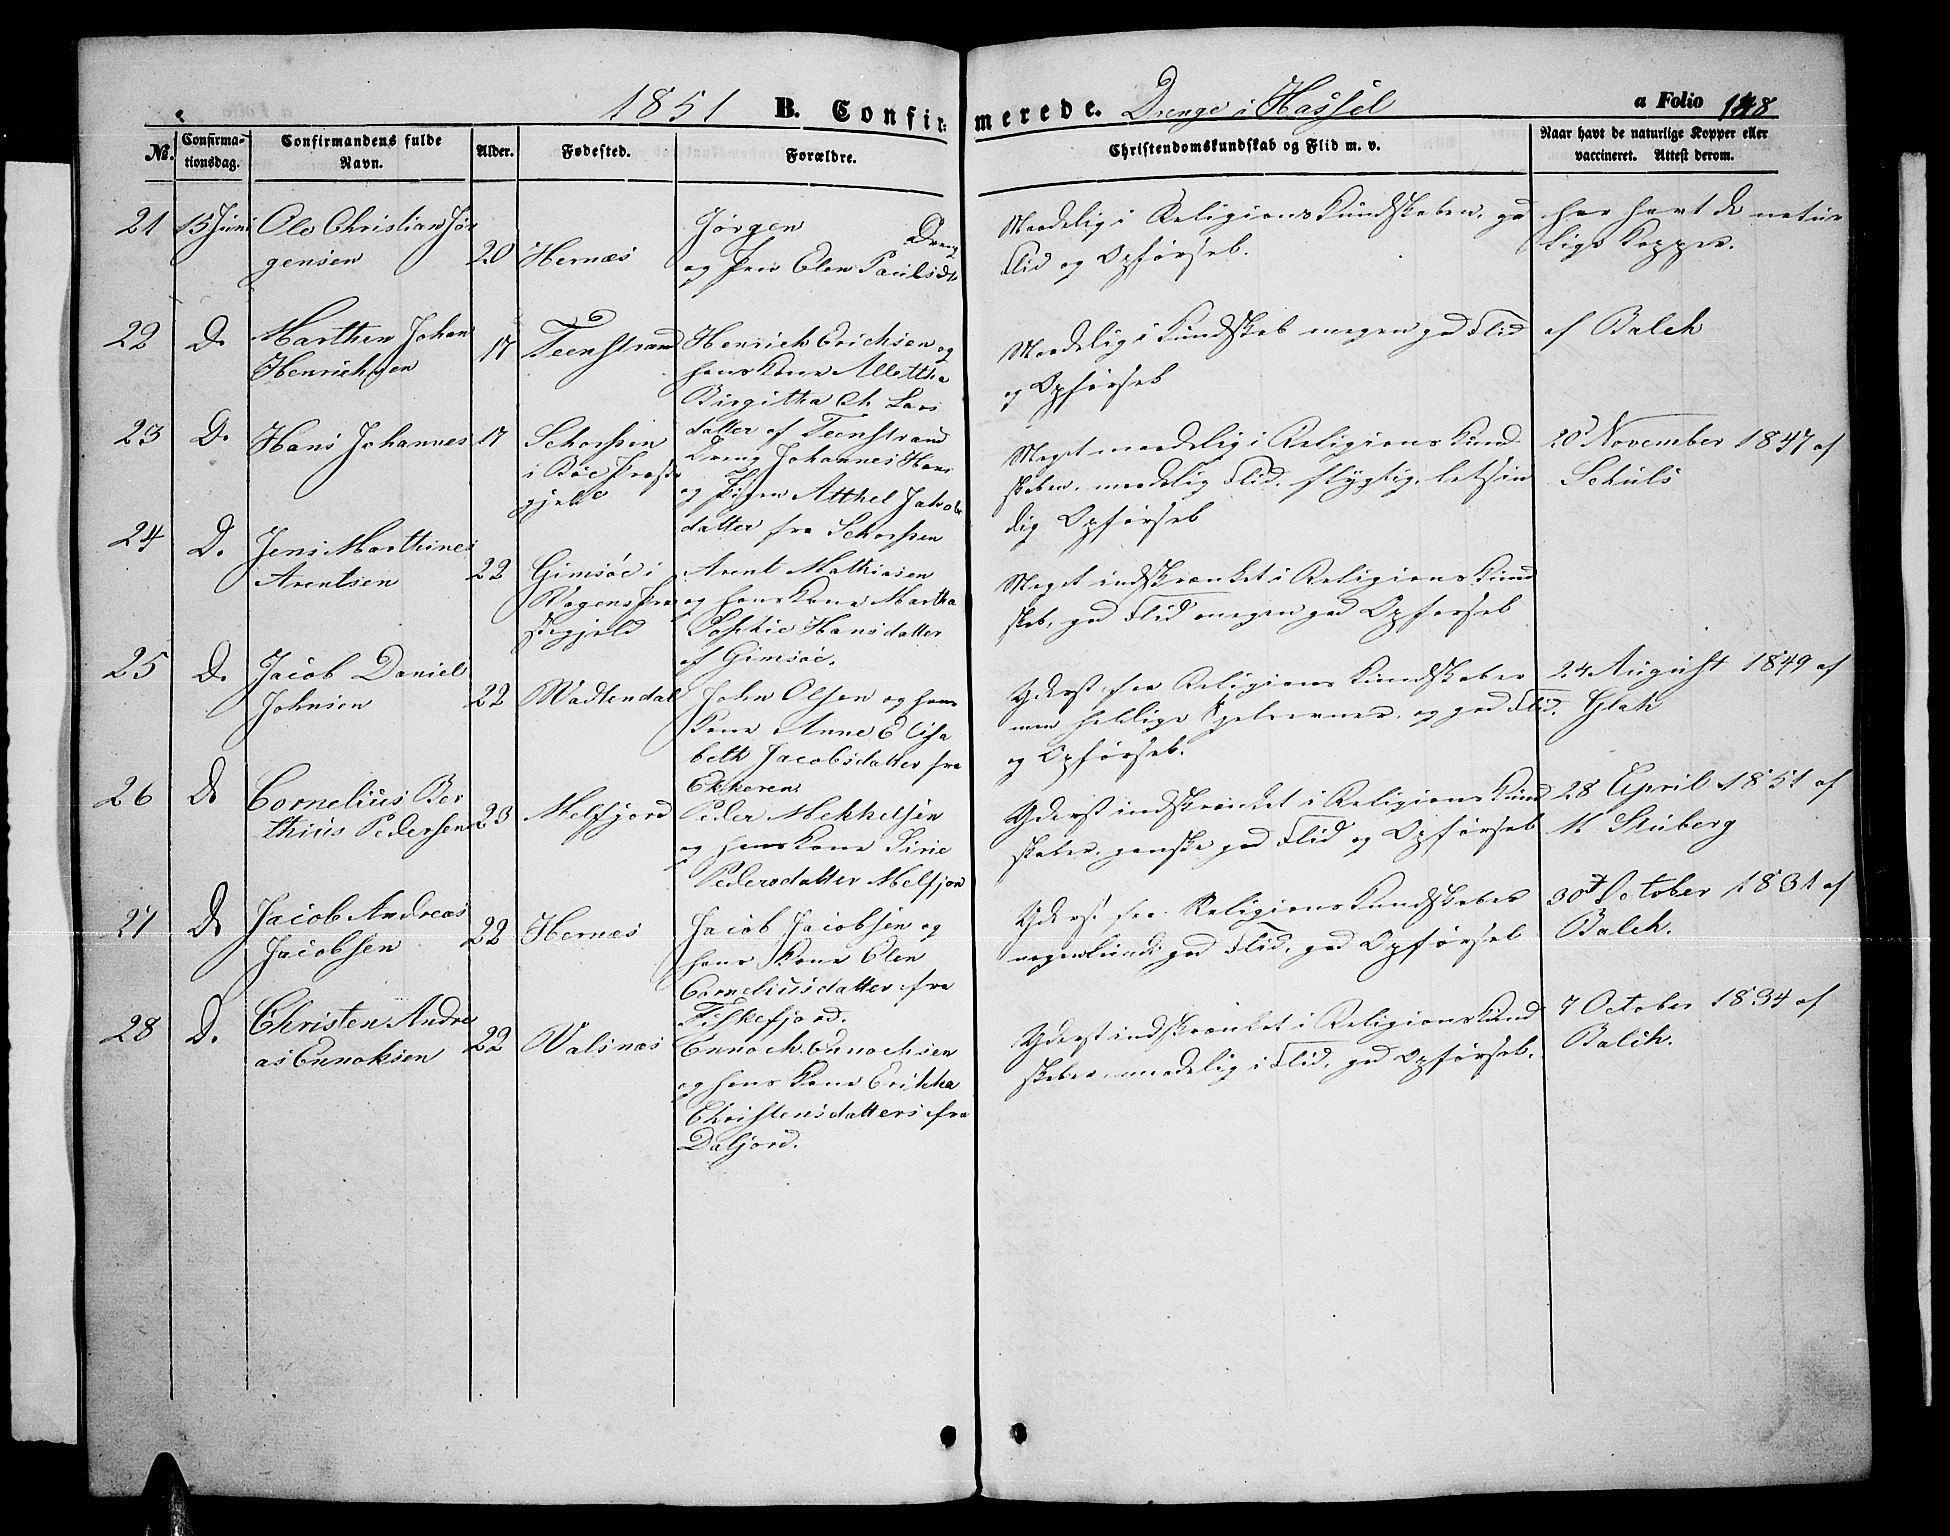 1851 B. Confirmerede. Drenge i Hassel a Folio 148
No. Confirmationsdag. Confirmandens fulde Navn. Alder. Fødested. Forældre. Christendomskundskab og Flid m. v. Naar havt de naturlige Kopper eller vaccineret. Attest derom.
21 15 Juni Ole Christian Jør
gensen
20 Hernæs
Jørgen Dreng
og Paulsdt
Maadelig i Religions Kundskaben, go
Flid og Opførsel.
har havt de natur
lige Kopper.
22 Do Marthin Johan
Henrichsen
17 Teenstrand
Henrich Erichsen og
hans Kone Allettha
Birgitha Ch. Lars
datter af Teenstrand
Maadelig i Kundskab megen god Flid
og Opførsel
af Balch
23 Do Hans Johannes
17 Schorpen
i Bøe Præste
gjeld
Dreng Johannes Hans
og Pigen Atthel Jakobs
datter fra Schorpen
Meget maadelig i Religions Kund
skaben, maadelig Flid, flygtig, letsin
dig Opførsel
20 November 1847 af
Schuls
24 Do Jens Marthines
Arentsen
22 Gimsøe i
Vogens Præ
stegjeld
Arent Mathiasen
og hans Kone Martha
Sophie Hansdatter
af Gimsøe.
Meget indskrænket i Religions Kund
skab, god Flid megen god Opførsel
25 Do Jacob Daniel
Johnsen
22 Wadtendal
John Olsen og hans
Kone Anne Elisa
beth Jacobsdatter fra
Ekkeren.
Yderst faa Religions Kundskaber
men heldige Sjelsevner, og god Flid
og Opførsel.
24 August 1849 af
Glak
26 Do Cornelius Ber
thius Pedersen
23 Melfjord
Peder Mekkelsen
og hans Kone Sirie
Pedersdatter Melfjor
Yderst indskrænket i Religions Kund
skaber, ganske god Flid og Opførsel
28 April 1851 af
M Stuberg
27 Do Jacob Andreas
Jacobsen
22 Hernæs
Jacob Jacobsen og
hans Kone Elen
Corneliusdatter fra
Fiskefjord.
Yderst faa Religions Kundskaber
nogenlunde god Flid, god Opførsel
30t October 1831 af
Balch.
28 Do Christen Andre
as Ennoksen
22 Valsnæs
Ennoch Ennochsen
og hans Kone Erikka
Christensdatters fra
Daljord.
Yderst indskrænket i Religions Kund
skaber, maadelig i Flid, god Opførsel.
7 October 1834 af
Balch.